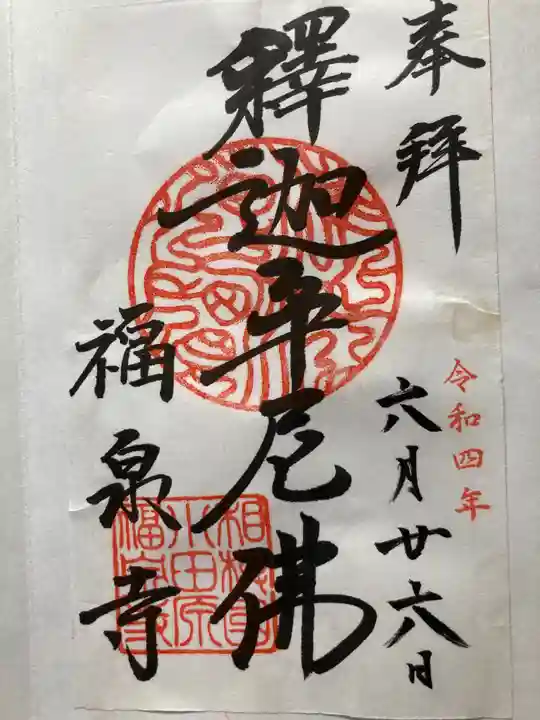 奉拜
令和四年
六月廿六日
釋迦牟尼佛
福泉寺
相模國
小田原
福泉寺